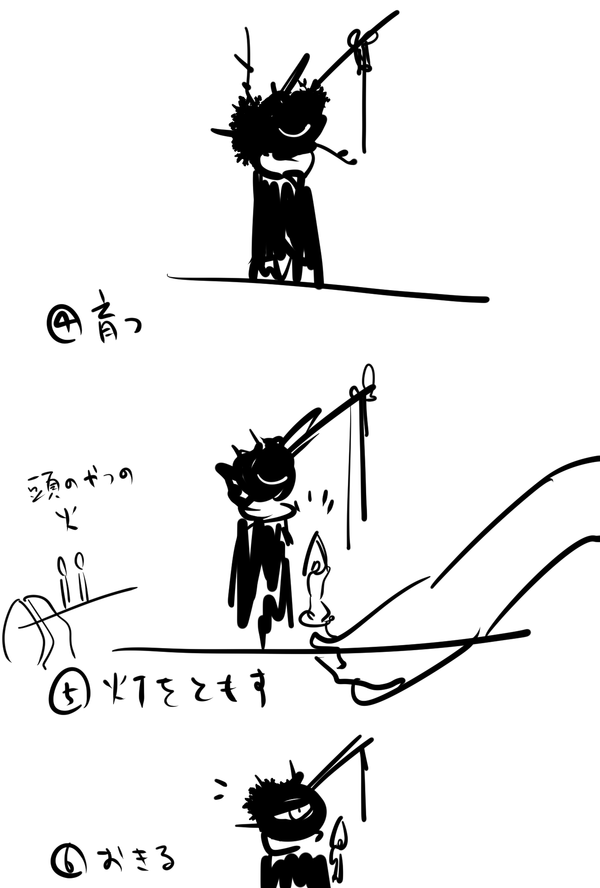 ④育つ
頭のやつの
火
⑤灯をともす
⑥おきる